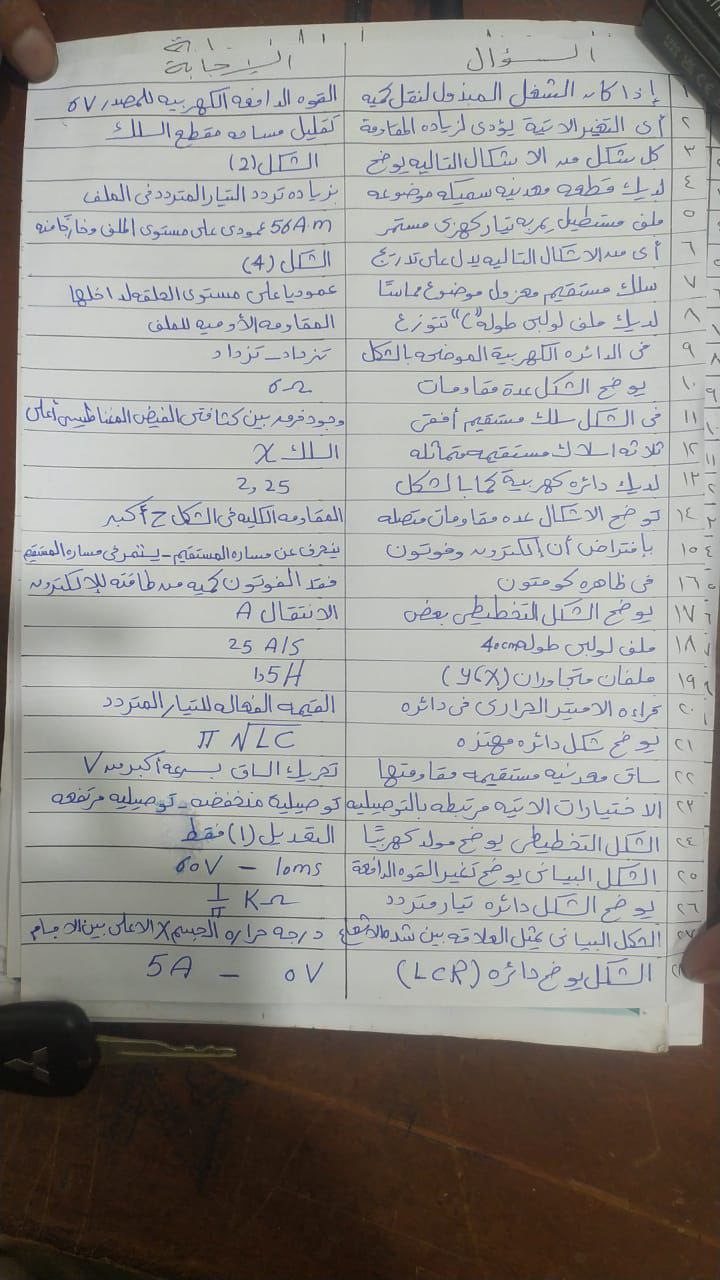 السؤال الإجابة
١ إذا كان الشغل المبذول لنقل كمية القوه الدافعه الكهربيه للمصدر 6V
٢ أى التغير الاتية يؤدى لزياده المقاومة كتقليل مساحه مقطع السلك
٣ كل شكل من الاشكال التاليه يوضح الشكل (2)
٤ لديك قطعه معدنيه سميكه موضوعه بزياده تردد التيار المتردد فى الملف
٥ ملف مستطيل يمر به تيار كهربى مستمر 56A.m عمودى على مستوى الملف وخارجًا منه
٦ أى من الاشكال التاليه يدل على تدريج الشكل (4)
٧ سلك مستقيم معزول موضوع مماسًا عموديا على مستوى الحلقه لداخلها
٨ لديك ملف لولبى طوله "L" تتوزع المقاومه الأوميه للملف
٩ فى الدائره الكهربية الموضحه بالشكل تزداد - تزداد
١٠ يوضح الشكل عدة مقاومات 6Ω
١١ فى الشكل سلك مستقيم أفقى وجود فرق بين كثافتى الفيض المغناطيسى أعلى
١٢ ثلاثه اسلاك مستقيمه متماثله السلك X
١٣ لديك دائره كهربية كما بالشكل 2,25
١٤ توضح الاشكال عده مقاومات متصله المقاومه الكليه فى الشكل ح أكبر
١٥ بافتراض أن إلكترون وفوتون ينحرف عن مساره المستقيم - يستمر فى مساره المستقيم
١٦ فى ظاهره كومتون فقد الفوتون كميه من طاقته للإلكترون
١٧ يوضح الشكل التخطيطى بعض الانتقال A
١٨ ملف لولبى طوله 40cm 25 A/S
١٩ ملفان متجاوران (X,Y) 1,5H
٢٠ قراءه الاميتر الحرارى فى دائره القيمه الفعاله للتيار المتردد
٢١ يوضح شكل دائره مهتزه π √LC
٢٢ ساق معدنيه مستقيمه مقاومتها تحريك الساق بسرعه أكبر من V
٢٣ الاختيارات الاتيه مرتبطه بالتوصيليه توصيلية منخفضه - توصيليه مرتفعه
٢٤ الشكل التخطيطى يوضح مولد كهربيًا التعديل (1) فقط
٢٥ الشكل البيانى يوضح تغير القوه الدافعة 60V - 10ms
٢٦ يوضح الشكل دائره تيار متردد 1/π KΩ
٢٧ الشكل البيانى يمثل العلاقه بين شده الاشعاع درجه حراره الجسم X الاعلى بين الاجسام
٢٨ الشكل يوضح دائره (LCR) 5A - 0V